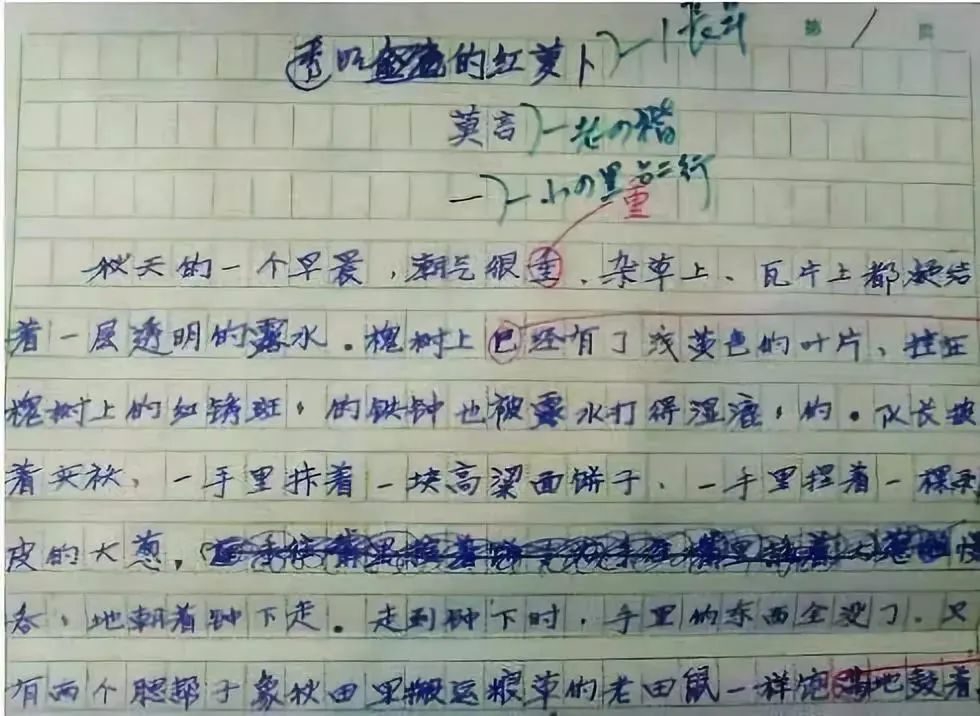 第 1 页
的红萝卜
莫言 一老の楷
一 小の黑占二行
重
秋天的一个早晨，潮气很重，杂草上、瓦片上都凝结
着一层透明的露水。槐树上已经有了浅黄色的叶片，挂在
槐树上的红锈斑、的铁钟也被露水打得湿漉、的。队长披
着夹袄，一手里拤着一块高粱面饼子，一手里捏着一棵剥
皮的大葱，慢
吞、地朝着钟下走。走到钟下时，手里的东西全没了，只
有两个腮帮子象秋田里搬运粮草的老田鼠一样饱满地鼓着